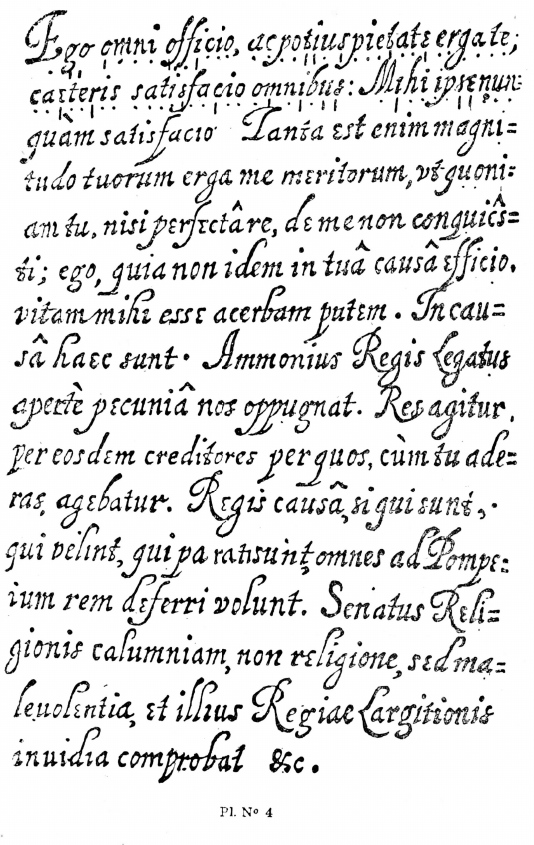 Ego omni officio, ac potius pietate erga te;
caeteris satisfacio omnibus: Mihi ipse nun=
quàm satisfacio Tanta est enim magni=
tudo tuorum erga me meritorum, vt quoni=
am tu, nisi perfectâ re, de me non conquiês=
ti; ego, quia non idem in tuâ causâ efficio,
vitam mihi esse acerbam putem. In cau=
sâ haec sunt. Ammonius Regis Legatus
apertè pecuniâ nos oppugnat. Res agitur,
per eosdem creditores per quos, cùm tu ade=
ras, agebatur. Regis causâ, si qui sunt,
qui velint, qui pa rati sunt, omnes ad Pompe=
ium rem deferri volunt. Senatus Reli=
gionis calumniam, non religione, sed ma=
levolentia, et illius Regiae Largitionis
invidia comprobat &c.
Pl. Nº 4